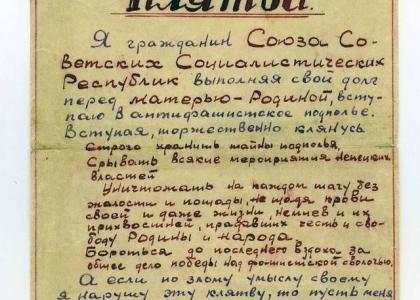 Клятва.
Я гражданин Союза Со-
ветских Социалистических
Республик выполняя свой долг
перед матерью-Родиной, всту-
паю в антифашистское подполье.
Вступая, торжественно клянусь
Строго хранить тайны подполья,
Срывать всякие мероприятия немецких
властей
Уничтожать на каждом шагу без
жалости и пощады, не щадя крови
своей и даже жизни, немцев и их
прихвостней, предавших честь и сво-
боду Родины и народа.
Бороться до последнего вздоха за
общее дело победы над фашистской сволочью.
А если по злому умыслу своему
я нарушу эту клятву, то пусть меня